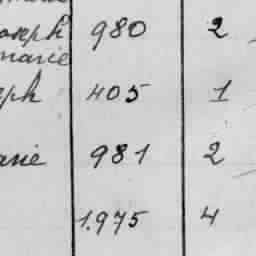 oseph 980 2
marie
eph 405 1
arie 981 2
1.975 4